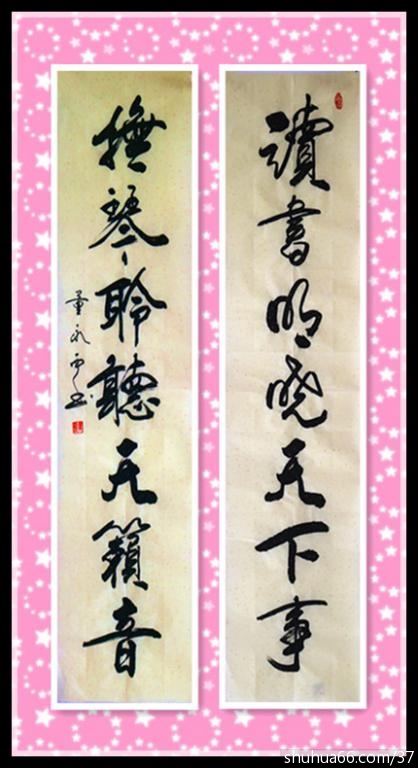 讀書明晓天下事
撫琴聆聽天籟音
董永书
shuhua66.com/37